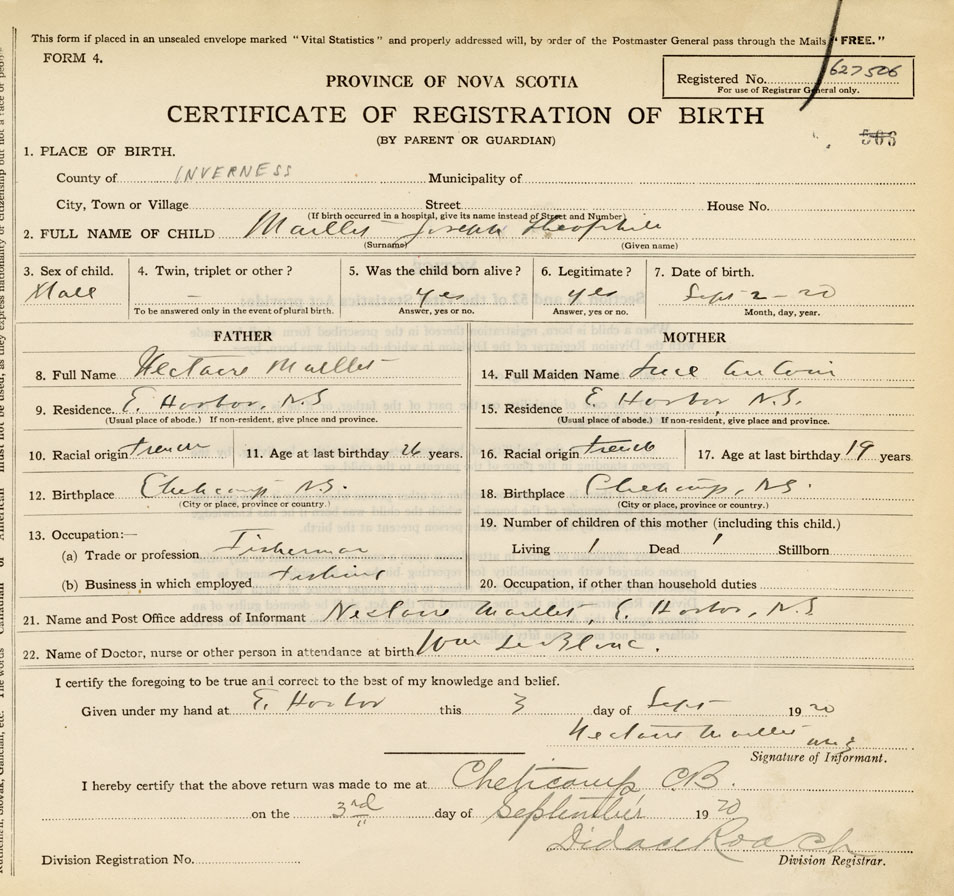 This form if placed in an unsealed envelope marked "Vital Statistics" and properly addressed will, by order of the Postmaster General pass through the Mails "FREE."
FORM 4.
Registered No. 627506
For use of Registrar General only.
PROVINCE OF NOVA SCOTIA
CERTIFICATE OF REGISTRATION OF BIRTH
(BY PARENT OR GUARDIAN)
1. PLACE OF BIRTH.
County of INVERNESS Municipality of
City, Town or Village Street House No.
(If birth occurred in a hospital, give its name instead of Street and Number)
2. FULL NAME OF CHILD Maillet Joseph Theophile
(Surname) (Given name)
3. Sex of child. 4. Twin, triplet or other? 5. Was the child born alive? 6. Legitimate? 7. Date of birth.
Male – yes yes Sept 2 – 20
To be answered only in the event of plural birth. Answer, yes or no. Answer, yes or no. Month, day, year.
FATHER MOTHER
8. Full Name Nectaire Maillet 14. Full Maiden Name Luce
9. Residence. E. Harbor, N.S 15. Residence E Harbor N.S.
(Usual place of abode.) If non-resident, give place and province. (Usual place of abode.) If non-resident, give place and province.
10. Racial origin french 11. Age at last birthday 26 years. 16. Racial origin french 17. Age at last birthday 19 years
12. Birthplace Cheticamp N.S. 18. Birthplace Cheticamp, N.S.
(City or place, province or country.) (City or place, province or country.)
13. Occupation:— 19. Number of children of this mother (including this child.)
(a) Trade or profession Fisherman Living 1 Dead 1 Stillborn
(b) Business in which employed Fishing 20. Occupation, if other than household duties
21. Name and Post Office address of Informant Nectaire Maillet, E. Harbor, N.S
22. Name of Doctor, nurse or other person in attendance at birth Wm LeBlanc.
I certify the foregoing to be true and correct to the best of my knowledge and belief.
Given under my hand at E. Harbor this 3 day of Sept 1920
Nectaire Maillet
Signature of Informant.
I hereby certify that the above return was made to me at Cheticamp C.B.
on the 3rd day of September 1920
Didace Roach
Division Registration No. Division Registrar.